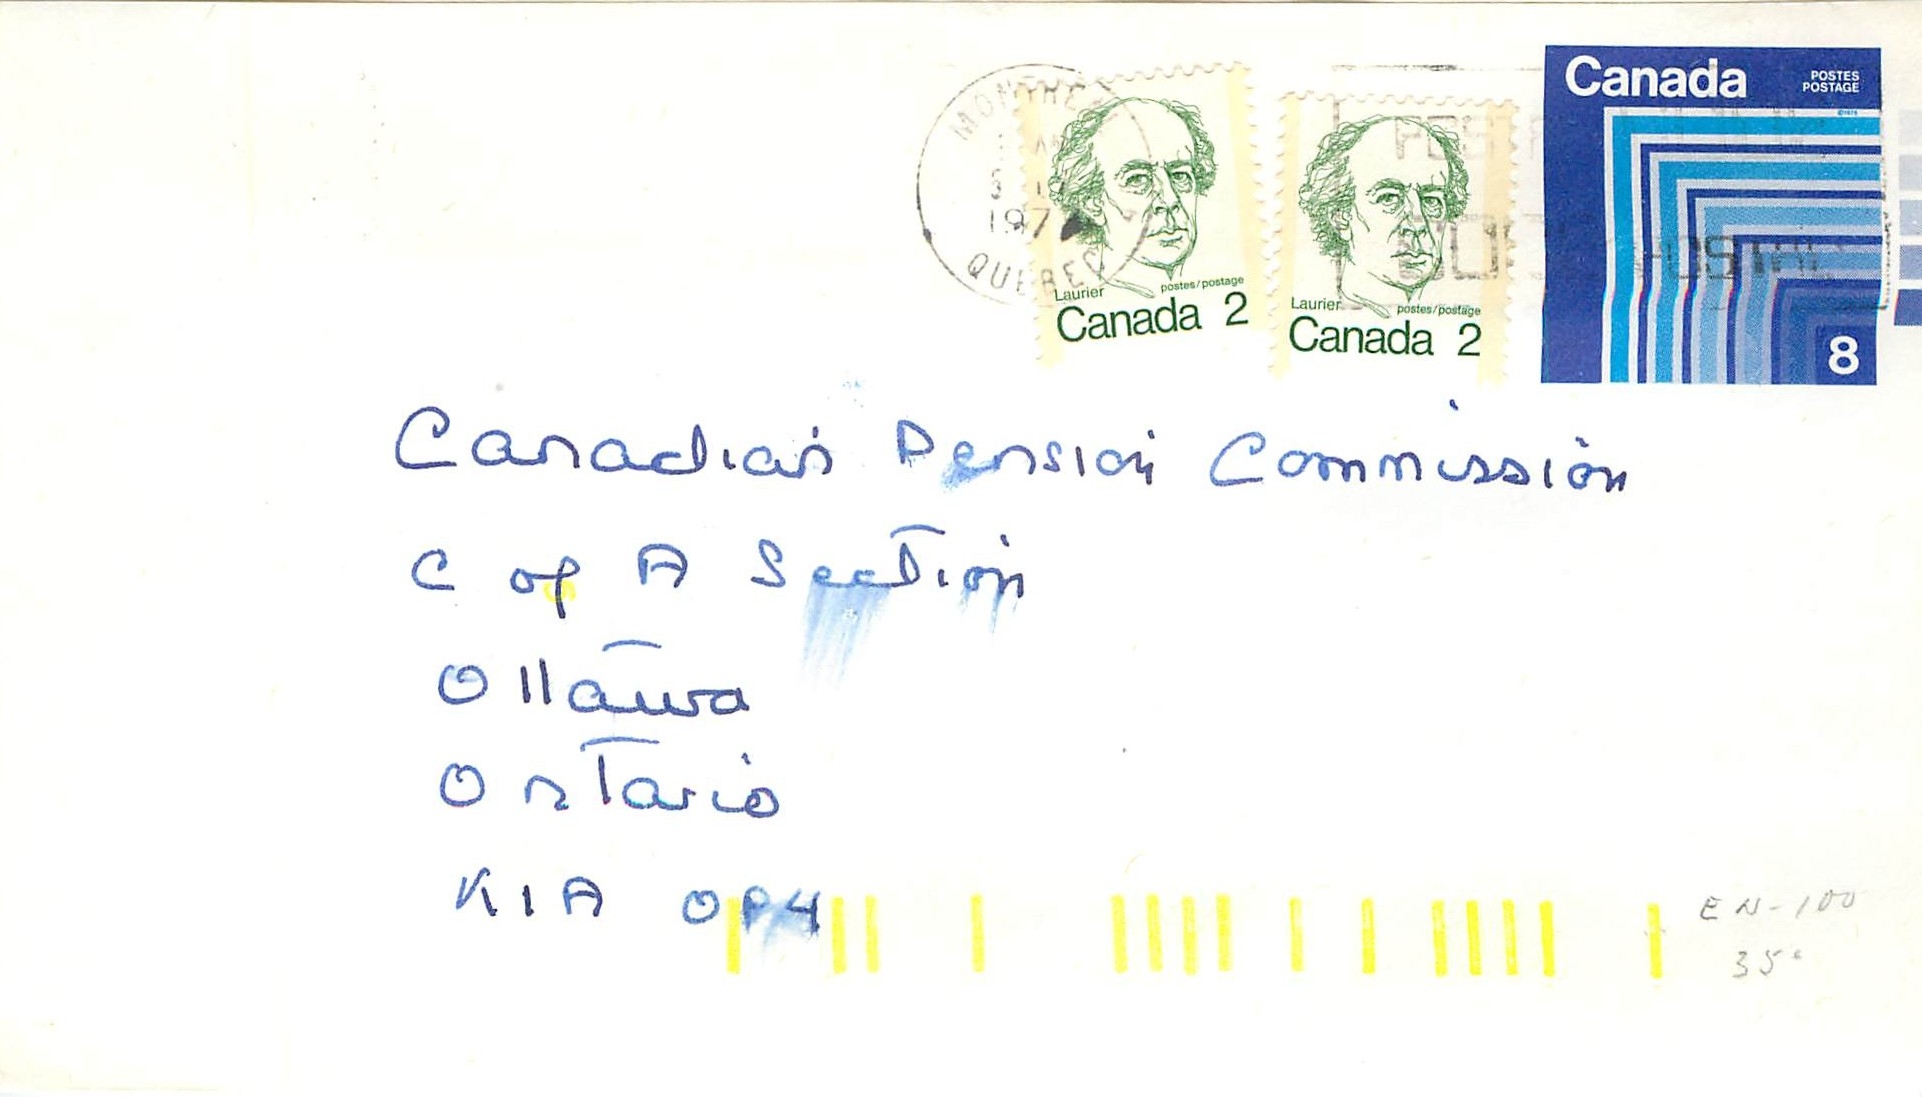 Canada POSTES
POSTAGE
8
MONTREAL
197
QUEBEC
Laurier postes/postage
Canada 2
Laurier postes/postage
Canada 2
POSTAL
Canadian Pension Commission
C of A Section
Ottawa
Ontario
K1A 0P4
EN-100
35¢